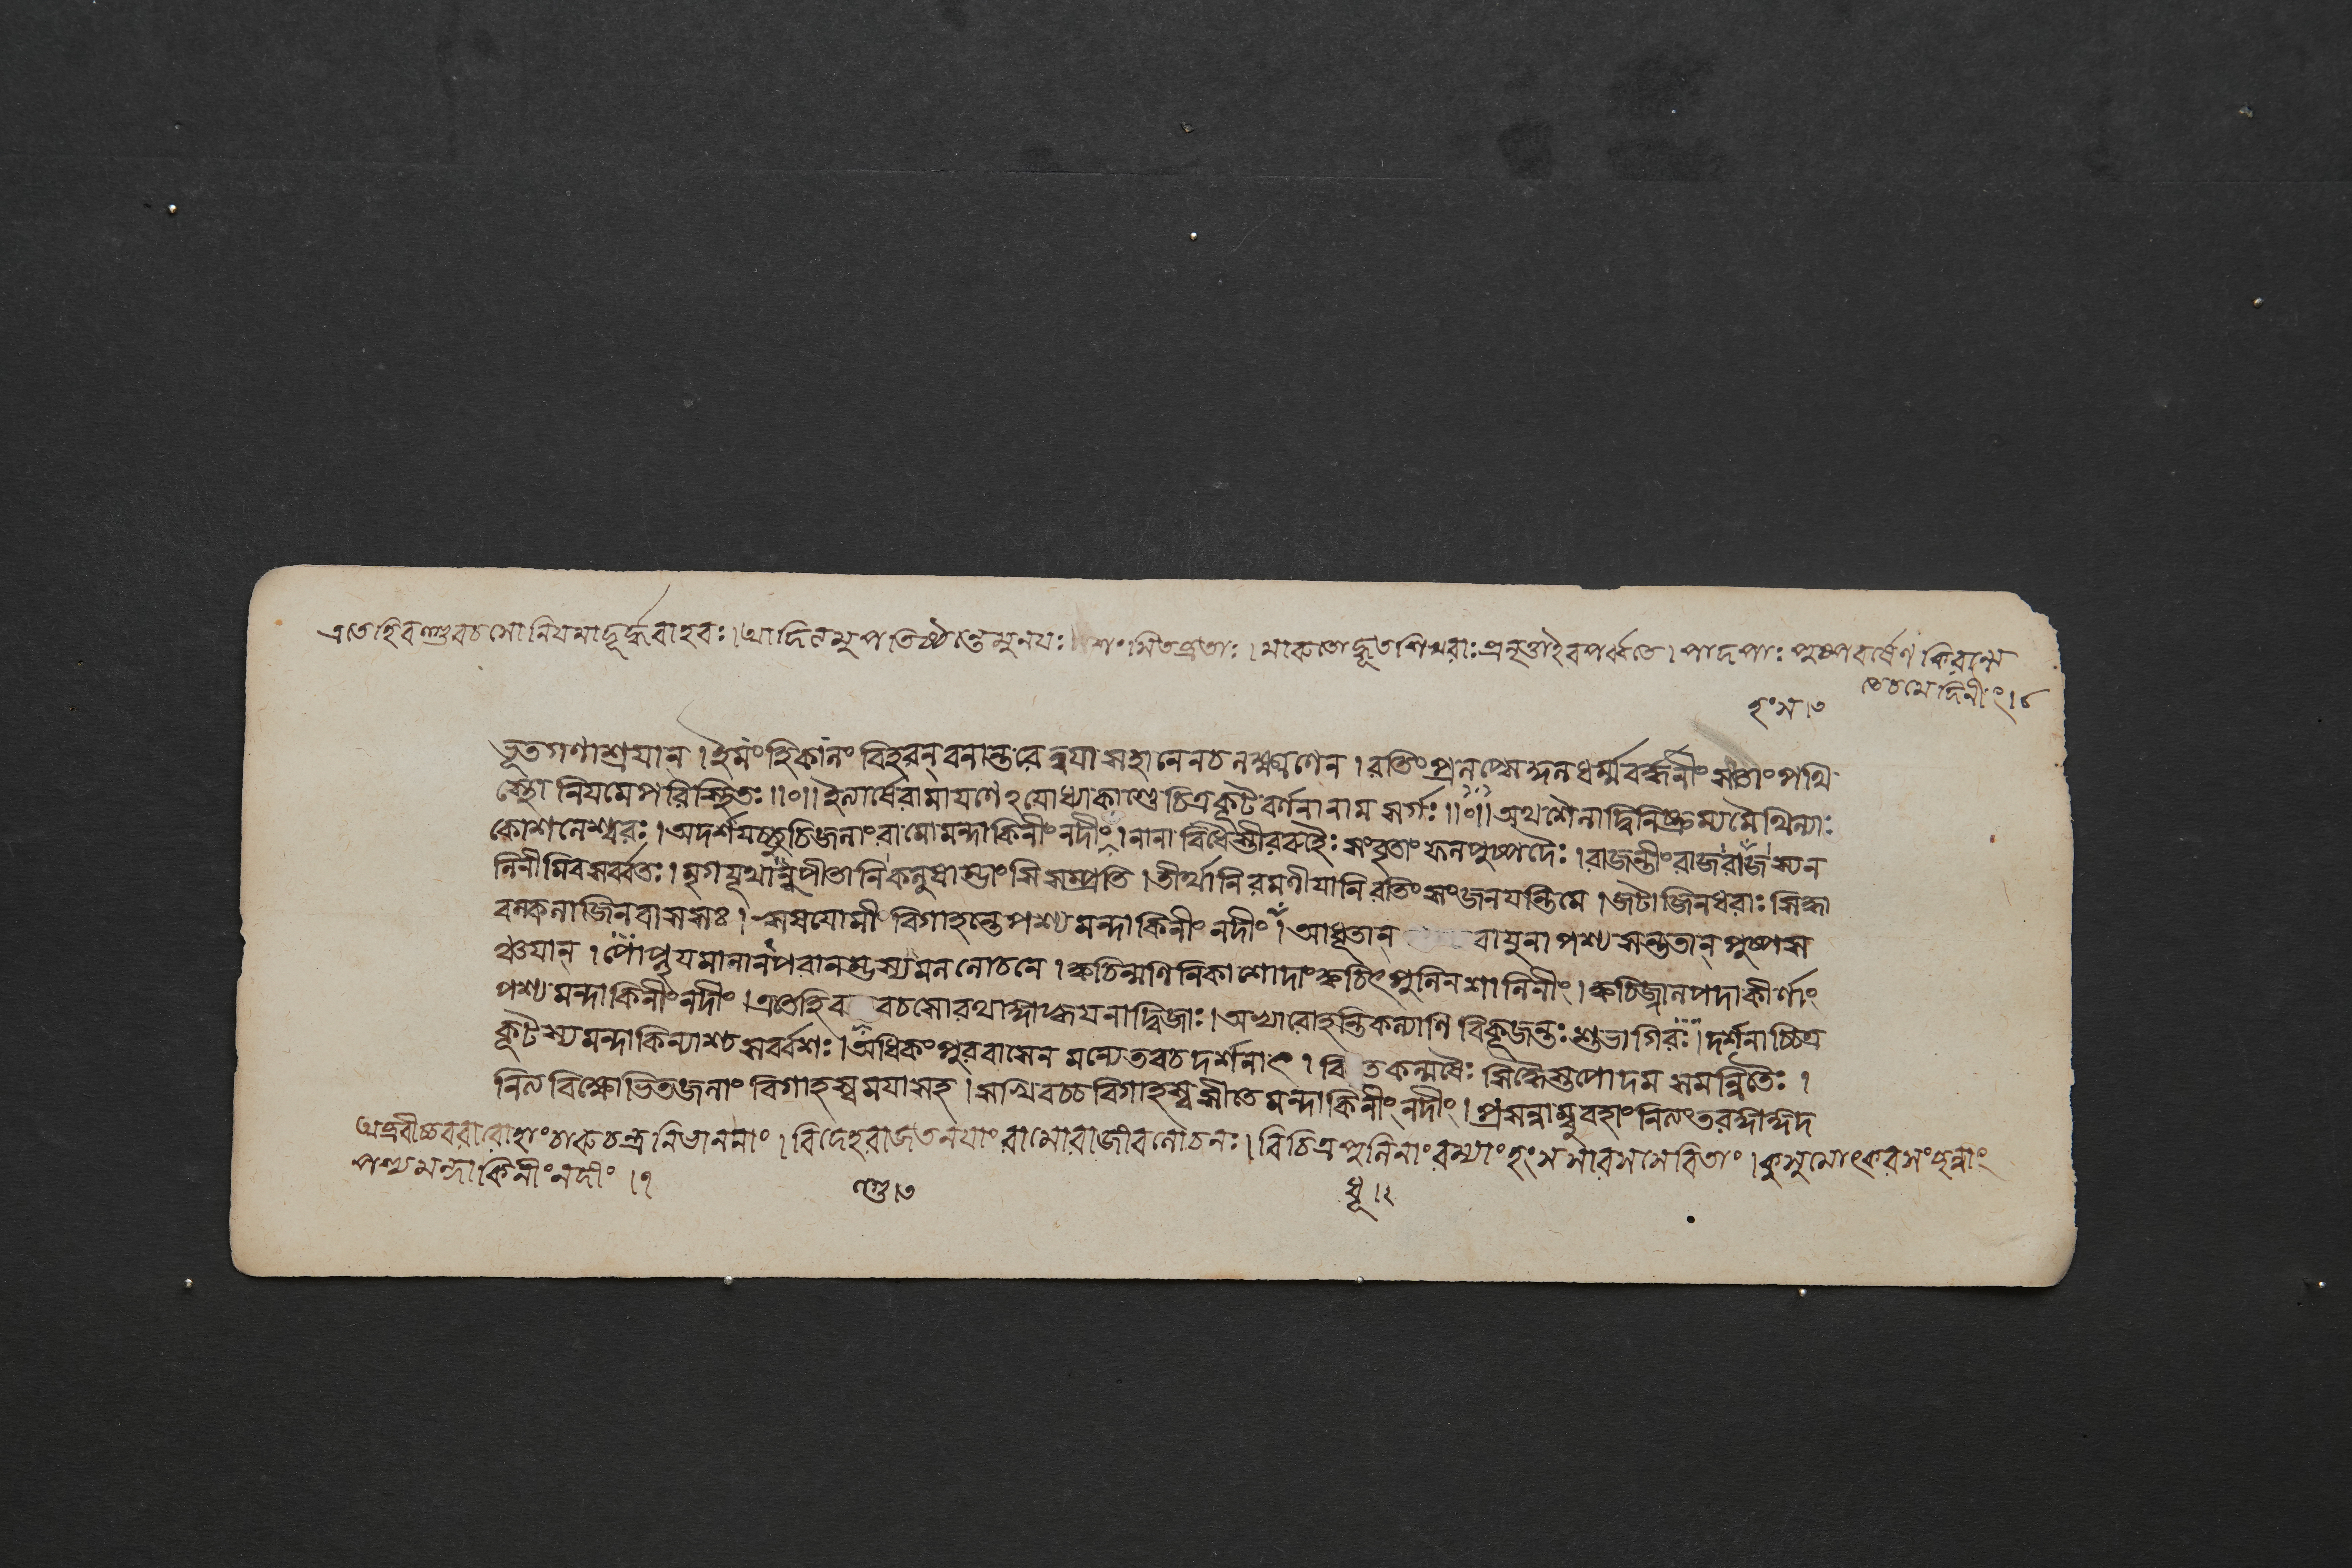 এতেহিবল্গুবচসোনিযমাদূর্দ্ধবাহবঃ।আদিত্যমুপতিষ্ঠন্তেমুনযঃ শংসিতব্রতাঃ।মারুতোদ্ধূতশিখরাঃপ্রনৃত্তাইবপর্ব্বতে।পাদপাঃপুষ্পবর্ষেণকিরন্ত্যে
তেচমেদিনীং।৪
হংস।৩
ভূতগণাশ্রযান্।ইমং বিহরন্বনান্তরেত্বযাসহানেনচলক্ষ্মণেন।রতিংপ্রলপ্স্যে ধর্ম্মবর্দ্ধনীংসতাংপথি
নিযমেপরিস্থিতঃ॥০॥ইত্যার্ষেরামাযণেঽযোধ্যাকাণ্ডেচিত্রকূটবর্ণনানামসর্গঃ॥০॥অথশৈলাদ্বিনিষ্ক্রম্যমৈথিল্যাঃ
কোশলেশ্বরঃ।অদর্শযচ্ছুচিজলাংরামোমন্দাকিনীংনদীং।নানাবিধৈস্তীররুহৈঃসংবৃতাংফলপুষ্পদৈঃ।রাজন্তীংরাজরাজস্যন
লিনীমিবসর্ব্বতঃ।মৃগযূথানুপীতানিকলুষাম্ভাংসিসম্প্রতি।তীর্থানিরমণীযানিরতিংসংজনযন্তিমে।জটাজিনধরাঃসিদ্ধা
বল্কলাজিনবাসসঃ। বিগাহন্তেপশ্যমন্দাকিনীংনদীং।আধূতান্ বাযুনাপশ্যসন্ততান্পুষ্পস
ঞ্চযান্।পোপ্লূযমানানপরানম্ভস্যমললোচনে।ক্বচিন্মণিনিকাশোদাংক্বচিৎপুলিনশালিনীং।ক্বচিজ্জনপদাকীর্ণাং
পশ্যমন্দাকিনীংনদীং।এতেহিব বচসোরথাঙ্গাহ্বযনাদ্বিজাঃ।অধ্যারোহন্তিকল্যাণিবিকূজন্তঃশুভাগিরঃ।দর্শনাচ্চিত্র
কূটস্যমন্দাকিন্যাশ্চসর্ব্বশঃ।অধিকংপুরবাসেনমন্যেতবচদর্শনাৎ।বি তকল্মষৈঃসিদ্ধৈস্তপোদমসমন্বিতৈঃ।
নিত্যবিক্ষোভিতজলাংবিগাহস্বমযাসহ।সখিবচ্চবিগাহস্বসীতেমন্দাকিনীংনদীং।প্রসন্নাম্বুবহাংনিত্যং
অব্রবীচ্চবরারোহাংচারুচন্দ্রনিভাননাং।বিদেহরাজতনযাংরামোরাজীবলোচনঃ।বিচিত্রপুলিনাংরম্যাংহংসসারসসেবিতাং।কুসুমোৎকরসংছন্নাং
পশ্যমন্দাকিনীংনদীং।১
ল্গু।৩
ধূ।২